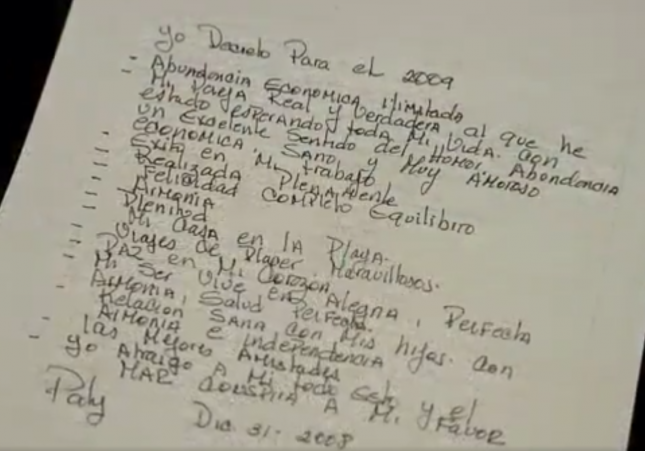 Yo Decreto Para el 2009
- Abundancia Economica Ilimitada
- Mi Pareja Real y Verdadera al que he
estado esperando toda Mi Vida. con
un Excelente Sentido del Humor Abundancia
economica, Sano y Muy Amoroso
- Exito en Mi trabajo
- Realizada Plenamente
- Felicidad Completo Equilibrio
- Armonia
- Plenitud
- Mi Casa en la Playa.
- Viajes de Placer Maravillosos.
- Paz en Mi Corazón
- Mi Ser Vive en Alegria, Perfecta
Armonia, Salud Perfecta.
- Relacion Sana con Mis hijas. con
Armonia e independencia
- las Mejores Amistades
yo Atraigo a Mi todo esto y el
MAR Conspira A Mi Favor
Paty Dic. 31. 2008